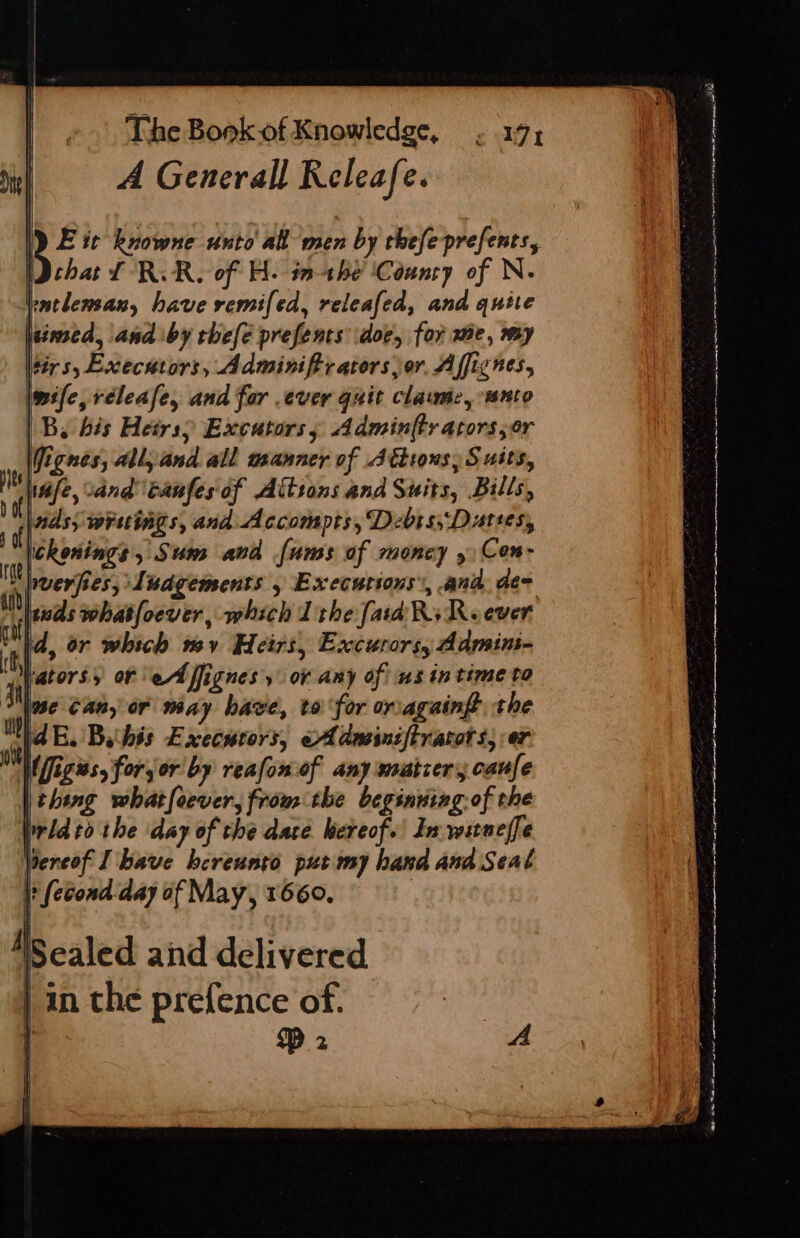 The Book of Knowledge, 171
A Generall Releaſe.
BE it knowne unto all men by theſe preſents,
that I R. R. of H. in the County of N.
entleman, have remiſed, releaſed, and quite
aimed, and by theſe preſents doe, for me, my
eirs, Executors, Adminiſtrators, or Aſſignes,
miſe, releaſe, and for ever quit claime, unto
B. his Heirs, Excutors, Adminſtrators, or
ſſignes, all, and all manner of Actions, Suits,
uſe, and cauſes of Actions and Suits, Bills,
nds, writings, and Accompts, Debts, Duties,
ckonings, Sum and ſums of money, Con-
verſies, Iudgements, Executions, and de-
ands whatſoever, which I the ſaid R. R. ever
d, or which my Heirs, Excutors, Admini-
ators, or Aſſignes, or any of us in time to
me can, or may have, to for or againſt the
id E. B. his Executors, Adminiſtratots, or
ſſigns, for, or by reaſon of any matter, cauſe
thing whatſoever, from the beginning of the
rld to the day of the date hereof. In witneſſe
hereof I have hereunto put my hand and Seal
ſecond day of May, 1660.
Sealed and delivered
in the preſence of.
M 2 A